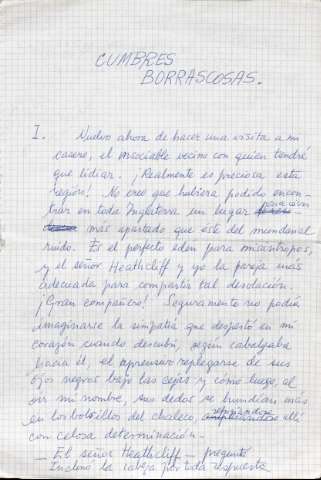 CUMBRES
BORRASCOSAS.
I. Vuelvo ahora de hacer una visita a mi
casero, el insociable vecino con quien tendré
que lidiar. ¡Realmente es preciosa esta
región! No creo que hubiera podido encon-
trar en toda Inglaterra un lugar
más apartado que éste del mundanal
ruido. Es el perfecto edén para misántropos,
y el señor Heathcliff y yo la pareja más
adecuada para compartir tal desolación.
¡Gran compañero! Seguramente no podía
imaginarse la simpatía que despertó en mi
corazón cuando descubrí, según cabalgaba
hacia él, el apresurar replegarse de sus
ojos negros bajo las cejas y cómo luego, al
oír mi nombre, sus dedos se hundían más
en los bolsillos del chaleco, allí
con celosa determinación.
— El señor Heathcliff — pregunté
Inclinó la cabeza por toda respuesta